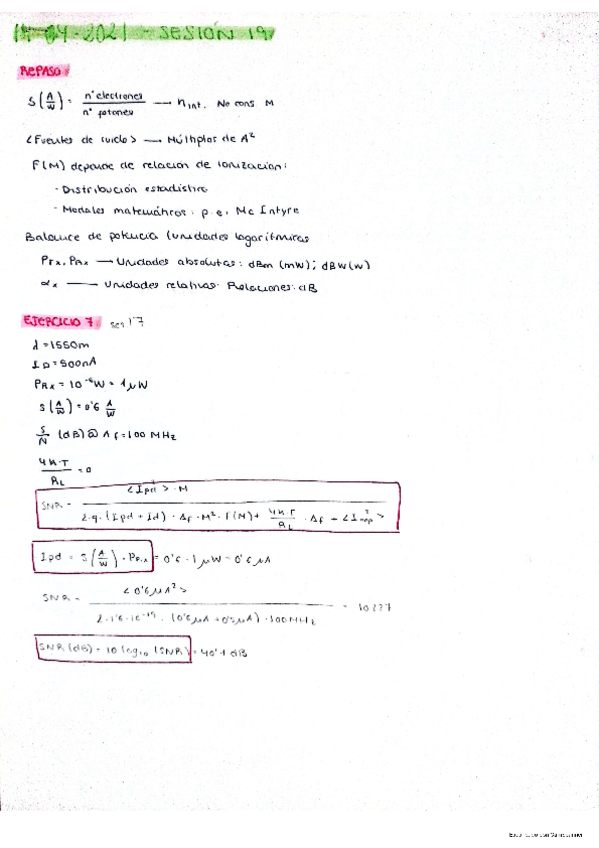 19-04-2021 - SESIÓN 19
REPASO
S(A/W) = nº electrones / nº fotones → ηint. No cons M
<Fuentes de ruido> → Múltiplos de A²
F(M) depende de relación de ionización:
· Distribución estadística
· Modelos matemáticos: p.e. Mc Intyre
Balance de potencia (unidades logarítmicas
PTx, PRx → Unidades absolutas: dBm (mW); dBW(W)
αx → Unidades relativas: Relaciones: dB
EJERCICIO 7 ses 17
λ = 1550m
ID = 500nA
PRx = 10⁻⁶W = 1μW
S(A/W) = 0'6 A/W
S/N (dB) @ Δf = 100 MHz
4KT/RL = 0
SNR = <Ipd²> · M / 2·q·(Ipd + Id) · Δf · M² · F(M) + 4KT/RL · Δf + <I²>
Ipd = S(A/W) · PRx = 0'6 · 1μW = 0'6 μA
SNR = <0'6μA²> / 2·1'6·10⁻¹⁹ · (0'6μA + 0'5μA) · 100MHz = 10227
SNR(dB) = 10 log10 (SNR) = 40'1 dB